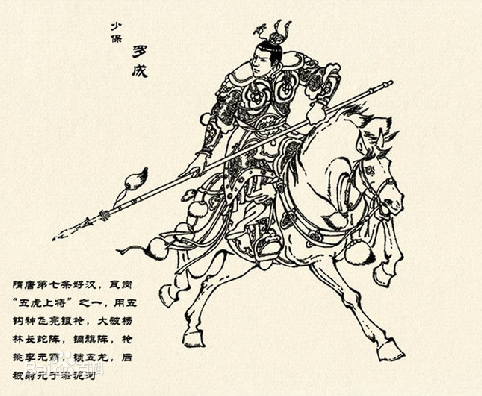 少保
罗成
隋唐第七条好汉，瓦岗
“五虎上将”之一，用五
钩神飞亮银枪，大破杨
林长蛇阵，铜旗阵，枪
挑李元霸，锁五龙，后
被射死于淤泥河